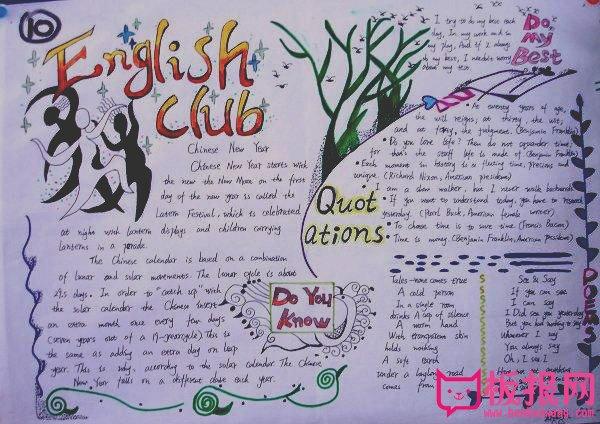 10
English
Club
Chinese New Year
Chinese New Year starts with
the new the New Moon on the first
day of the new year is called the
Latern Festival, which is celebrated
at night with lantern displays and children carrying
lanterns in a parade.
The Chinese calendar is based on a combination
of lunar and solar movements. The lunar cycle is about
29.5 days. In order to "catch up" with
the solar calendar the Chinese insert
an extra month once every few days
(seven years out of a 19-year cycle) This is
the same as adding an extra day on leap
year. This is why, according to the solar calendar The Chinese
New Year falls on a different date each year.
Do You
Know
I try to do my best each
day, In my work and in
my play, And if I always
do my best, I needn't worry
about my test.
Do
My
Best
Quot
ations
At twenty years of age,
the will reigns; at thirty, the wit;
and at forty, the judgment. (Benjamin Franklin)
Do you love life? Then do not squander time;
for that's the stuff life is made of (Benjamin Franklin)
Each moment in history is a fleeting time, precious and
unique. (Richard Nixon, American president)
I am a slow walker, but I never walk backwards.
If you want to understand today, you have to research
yesterday. (Pearl Buck, American female writer)
To choose time is to save time (Francis Bacon)
Time is money. (Benjamin Franklin, American president)
Tales-none comes true
A cold person
In a single room
drinks A cup of silence
A warm hand
With transparent skin
holds nothing
A safe
under a laughing road
comes from
See & Say
If you can see
I can say
I Did see you yesterday
But you had nothing to say
Whatever I say
You always say
Oh, I see!
板报网